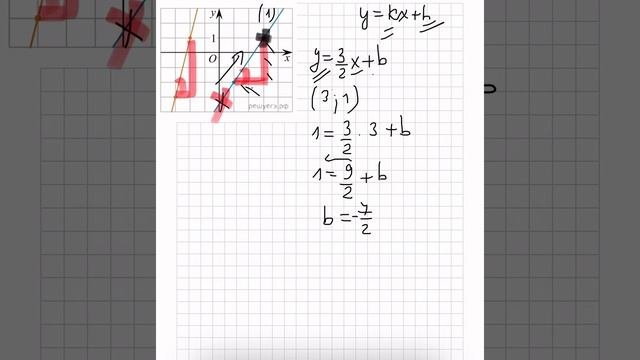 y
(1)
1
O
x
решуегэ.рф
y=kx+b
y=3/2x+b
(3;1)
1=3/2·3+b
1=9/2+b
b=-7/2